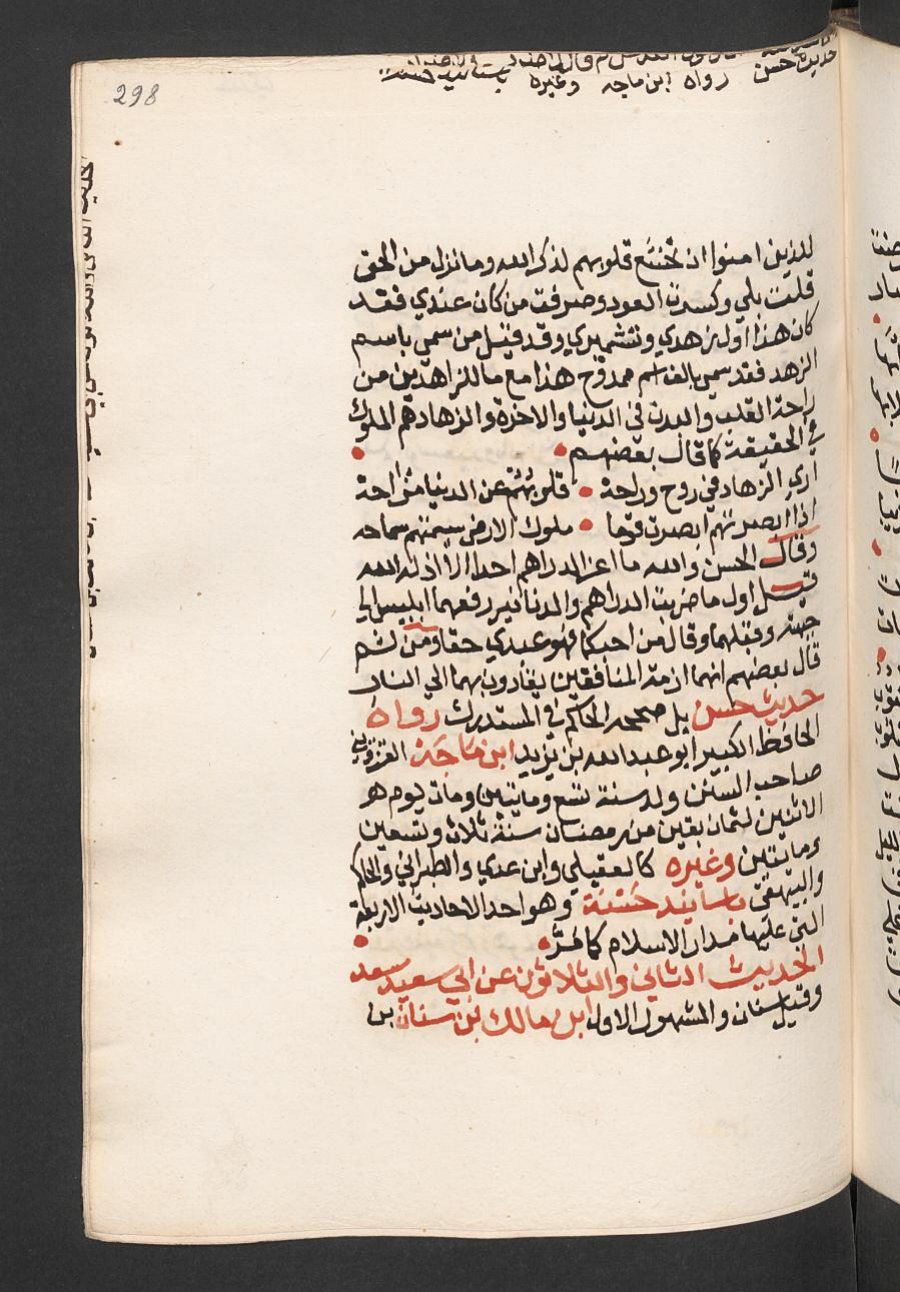 298
حديث حسن رواه ابن ماجه وغيره باسانيد حسنة
للذين امنوا ان تخشع قلوبهم لذكر الله وما نزل من الحق
قلت بلي وكسرت العود وصرفت من كان عندي فقد
كان هذا اول زهدي وتشميري وقد قيل من سمي باسم
الزهد فقد سمي بالف اسم ممدوح هذا مع ما للزاهدين من
راحة القلب والبدن في الدنيا والاخرة والزهاد هم الملوك
في الحقيقة كما قال بعضهم
اري الزهاد في روح وراحة • قلوبهم عن الدنيا مزاحة
اذا ابصرتهم ابصرت قوما • ملوك الارض سيمتهم سماحه
وقال الحسن والله ما اعز الدراهم احدا الا اذله الله
قيل اول ما ضربت الدراهم والدنانير رفعهما ابليس الى
جبهته وقبلهما وقال من احبكما فهو عبدي حقا ومن ثم
قال بعضهم انهما ازمة المنافقين يقادون بهما الي النار
حديث حسن بل صححه الحاكم في المستدرك رواه
الحافظ الكبير ابو عبد الله بن يزيد ابن ماجة القزويني
صاحب السنن ولد سنة تسع وماتين ومات يوم
الاثنين لثمان بقين من رمضان سنة ثلاث وتسعين
وماتين وغيره كالعقيلي وابن عدي والطبراني والحاكم
والبيهقي باسانيد حسنة وهو احد الاحاديث الاربعة
التي عليها مدار الاسلام كما مر
الحديث الثاني والثلاثون عن ابي سعيد سعد
وقيل سنان والمشهور الاول ابن مالك بن سنان بن